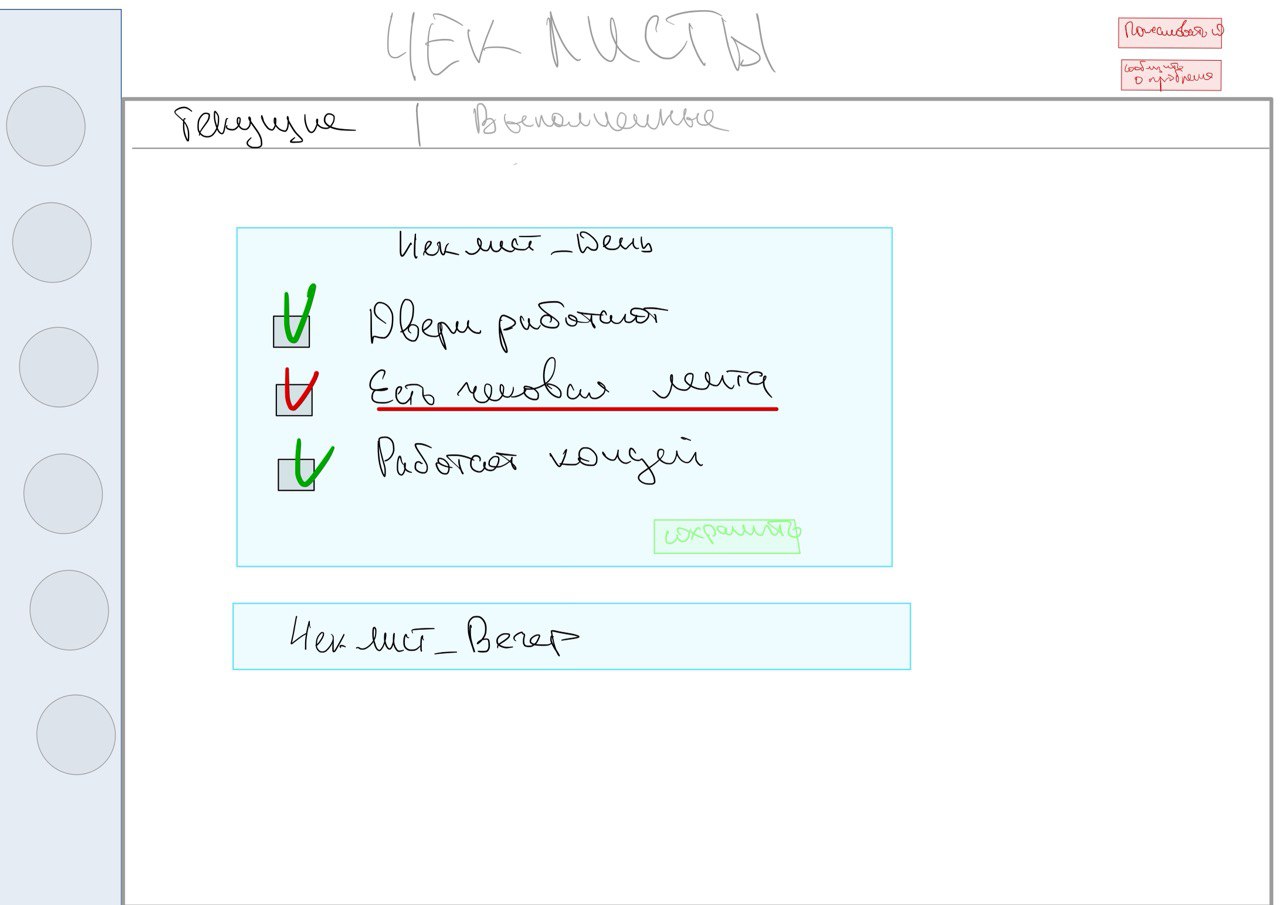 ЧЕК ЛИСТЫ
Пожаловаться
сообщить
о проблеме
Текущие | Выполненные
Чек лист_День
Двери работают
Есть чековая лента
Работает кондей
сохранить
Чек лист_Вечер